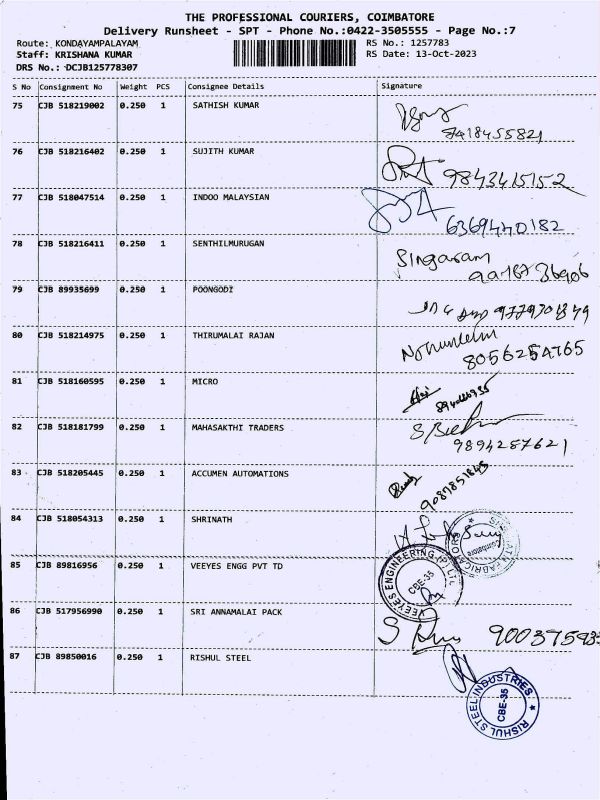 THE PROFESSIONAL COURIERS, COIMBATORE
Delivery Runsheet - SPT - Phone No.:0422-3505555 - Page No.:7
Route: KONDAYAMPALAYAM RS No.: 1257783
Staff: KRISHANA KUMAR RS Date: 13-Oct-2023
DRS No.: DCJB125778307
S No Consignment No Weight PCS Consignee Details Signature
75 CJB 518219002 0.250 1 SATHISH KUMAR
9418455821
76 CJB 518216402 0.250 1 SUJITH KUMAR
9843415152
77 CJB 518047514 0.250 1 INDOO MALAYSIAN
6369440182
78 CJB 518216411 0.250 1 SENTHILMURUGAN
Singaram
79 CJB 89935699 0.250 1 POONGODI
80 CJB 518214975 0.250 1 THIRUMALAI RAJAN
8056254765
81 CJB 518160595 0.250 1 MICRO
82 CJB 518181799 0.250 1 MAHASAKTHI TRADERS
9894287621
83 CJB 518205445 0.250 1 ACCUMEN AUTOMATIONS
9087851845
84 CJB 518054313 0.250 1 SHRINATH
FABRICATORS
Coimbatore
85 CJB 89816956 0.250 1 VEEYES ENGG PVT TD
VEEYES ENGINEERING (P) LTD
CBE-35
86 CJB 517956990 0.250 1 SRI ANNAMALAI PACK
90037593
87 CJB 89850016 0.250 1 RISHUL STEEL
RISHUL STEEL INDUSTRIES
CBE-35